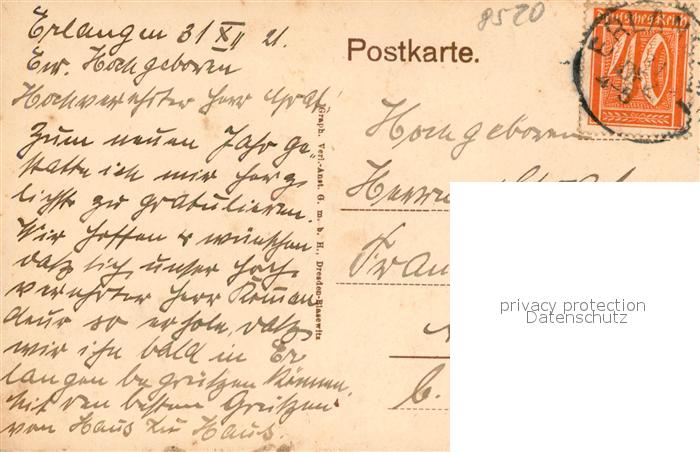 8520
Erlangen 31 XII 21.
Ew. Hochgeboren
Hochverehrter Herr Graf
Zum neuen Jahr ge
statte ich mir herz
lichst zu gratulieren.
Wir hoffen & wünschen
daß sich unser hoch
verehrter Herr Komman
deur so erhole, daß
wir ihn bald in Er
langen begrüßen können.
Mit den besten Grüßen
von Haus zu Haus.
Graph. Verl.-Anst. G. m. b. H., Dresden-Blasewitz
Postkarte.
Deutsches Reich
40
Hochgeboren
Herrn
Fran
b.
privacy protection
Datenschutz